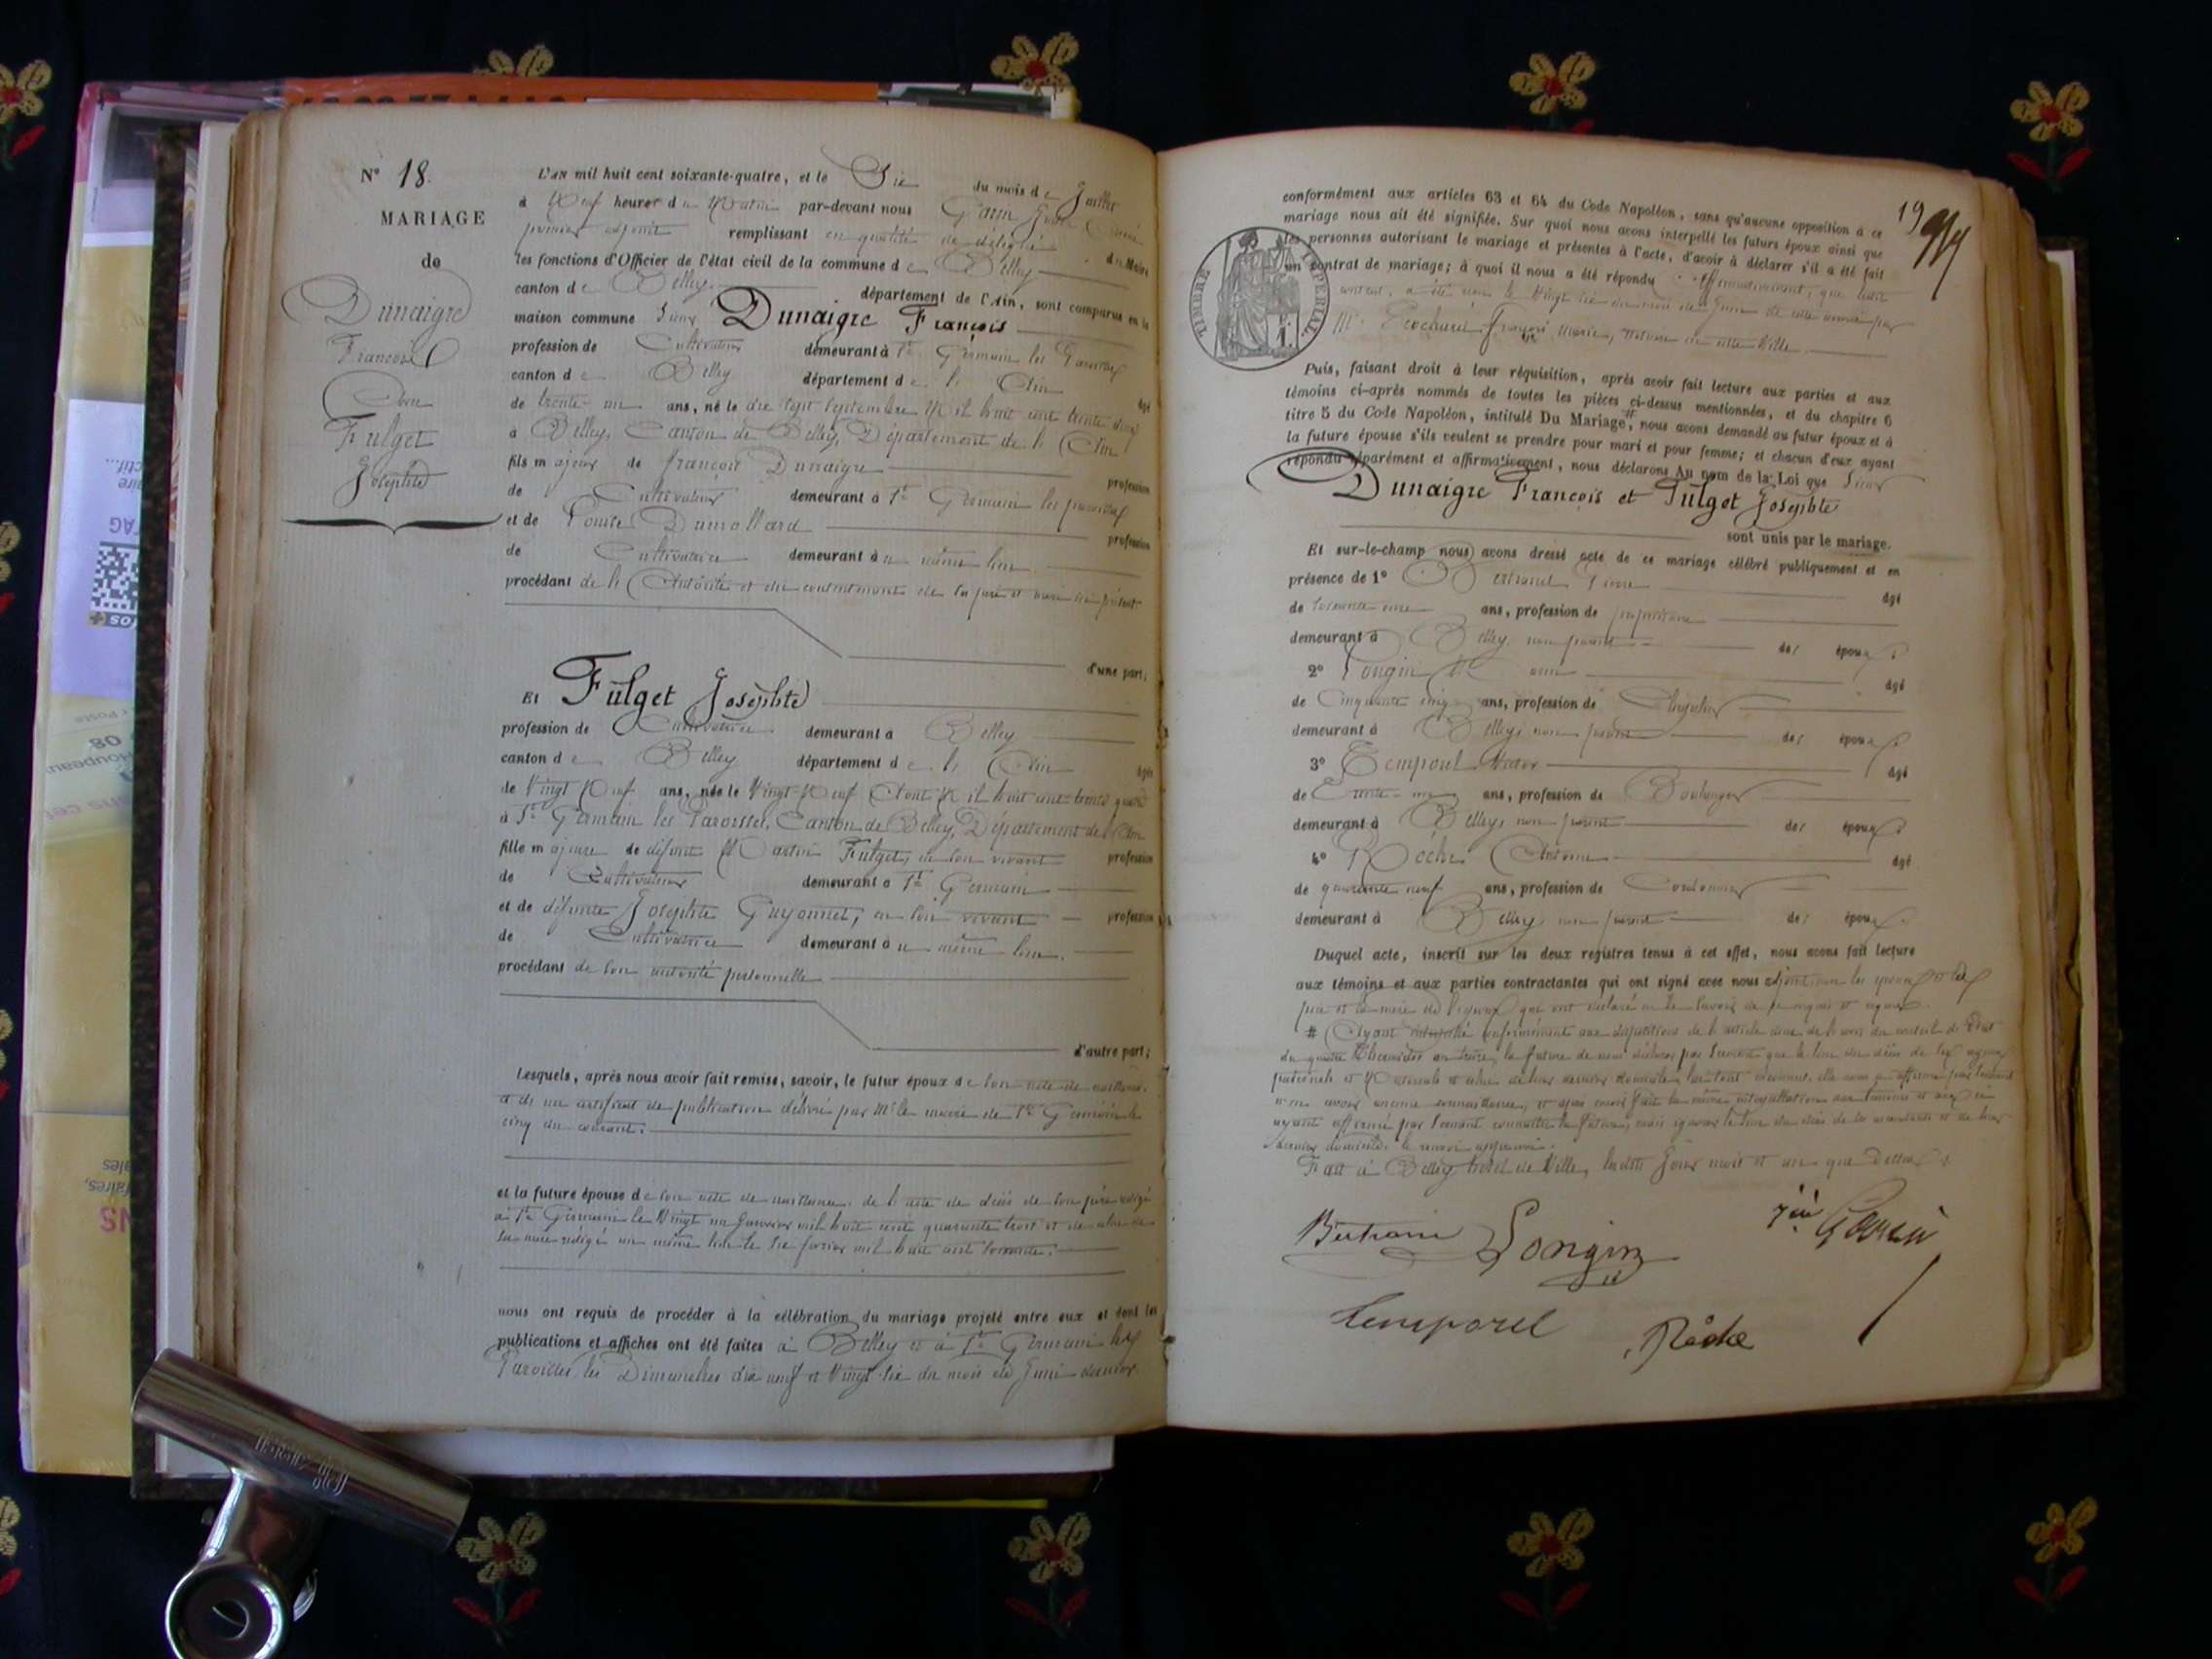 N° 18.
MARIAGE
de
Dunaigre
François
Fulget
Josephte
L'AN mil huit cent soixante-quatre, et le Six du mois de Juillet
à Neuf heures du Matin par-devant nous
premier adjoint remplissant en qualité de délégué du Maire
les fonctions d'Officier de l'état civil de la commune de Belley
canton de Belley département de l'Ain, sont comparus en la
maison commune Sieur Dunaigre François
profession de Cultivateur demeurant à St Germain les Paroisses
canton de Belley département de l'Ain âgé
de trente-un ans, né le dix sept Septembre Mil huit cent trente deux
à Belley, Canton de Belley, Département de l'Ain
fils majeur de françois Dunaigre profession
de Cultivateur demeurant à St Germain les paroisses
et de Louise Dumollard profession
de Cultivatrice demeurant au même lieu.
procédant de l'Autorité et du consentement de ses père et mère ici présents
d'une part;
Et Fulget Josephte
profession de Cultivatrice demeurant à Belley
canton de Belley département de l'Ain âgée
de Vingt Neuf ans, née le Vingt-Neuf Août Mil huit cent trente quatre
à St Germain les Paroisses, Canton de Belley, Département de l'Ain
fille majeure de défunt Martin Fulget, en son vivant profession
de Cultivateur demeurant à St Germain
et de défunte Josephte Guyonnet, en son vivant profession
de Cultivatrice demeurant au même lieu.
procédant de son autorité personnelle
d'autre part;
Lesquels, après nous avoir fait remise, savoir, le futur époux de son acte de naissance.
et du un certificat de publication délivré par Mr le maire de St Germain le
cinq du courant.
et la future épouse de son acte de naissance. de l'acte de décès de son père rédigé
à St Germain le Vingt un Janvier mil huit cent quarante trois et de celui de
sa mère rédigé au même lieu le Six février mil huit cent soixante.
nous ont requis de procéder à la célébration du mariage projeté entre eux et dont les
publications et affiches ont été faites à Belley et à St Germain les
Paroisses, les Dimanches dix neuf et Vingt-six du mois de Juin dernier.
19
conformément aux articles 63 et 64 du Code Napoléon, sans qu'aucune opposition à ce
mariage nous ait été signifiée. Sur quoi nous avons interpellé les futurs époux ainsi que
les personnes autorisant le mariage et présentes à l'acte, d'avoir à déclarer s'il a été fait
un contrat de mariage; à quoi il nous a été répondu affirmativement, que ledit
contrat, a été reçu le Vingt six du mois de Juin de cette année par
Me François Marie, Notaire en cette Ville.
TIMBRE IMPERIAL.
Puis, faisant droit à leur réquisition, après avoir fait lecture aux parties et aux
témoins ci-après nommés de toutes les pièces ci-dessus mentionnées, et du chapitre 6
titre 5 du Code Napoléon, intitulé Du Mariage #, nous avons demandé au futur époux et à
la future épouse s'ils veulent se prendre pour mari et pour femme; et chacun d'eux ayant
répondu séparément et affirmativement, nous déclarons Au nom de la Loi que Sieur
Dunaigre François et Fulget Josephte
sont unis par le mariage.
Et sur-le-champ nous avons dressé acte de ce mariage célébré publiquement et en
présence de 1° Bertrand Pierre âgé
de soixante onze ans, profession de propriétaire
demeurant à Belley, non parent des époux.
2° Longin âgé
de Cinquante cinq ans, profession de Chapelier
demeurant à Belley, non parent des époux.
3° Temporel Victor âgé
de Trente-un ans, profession de Boulanger
demeurant à Belley, non parent des époux.
4° Roche Antoine âgé
de quarante neuf ans, profession de Cordonnier
demeurant à Belley non parent des époux.
Duquel acte, inscrit sur les deux registres tenus à cet effet, nous avons fait lecture
aux témoins et aux parties contractantes qui ont signé avec nous adjoint, non les époux et les
père et la mère de l'époux qui ont déclaré ne le savoir de ce enquis et requis.
# Ayant interpellé conformément aux dispositions de l'article deux de l'avis du conseil de l'État
du quatre Thermidor an treize, la future de nous déclarer par Serment que le lieu du décès de ses ayeux
paternels et Maternels et celui de leur dernier domicile lui sont inconnus, elle nous a affirmé par Serment
n'en avoir aucune connaissance, et après avoir fait la même interpellation aux témoins et ceux-ci
ayant affirmé par Serment connaître la future, mais ignorer le lieu du décès de ses ascendants et de leur
dernier domicile. le renvoi approuvé.
Fait à Belley hôtel de Ville, lesdits Jour mois et an que Dessus.
Bertrand Longin
Temporel Roche